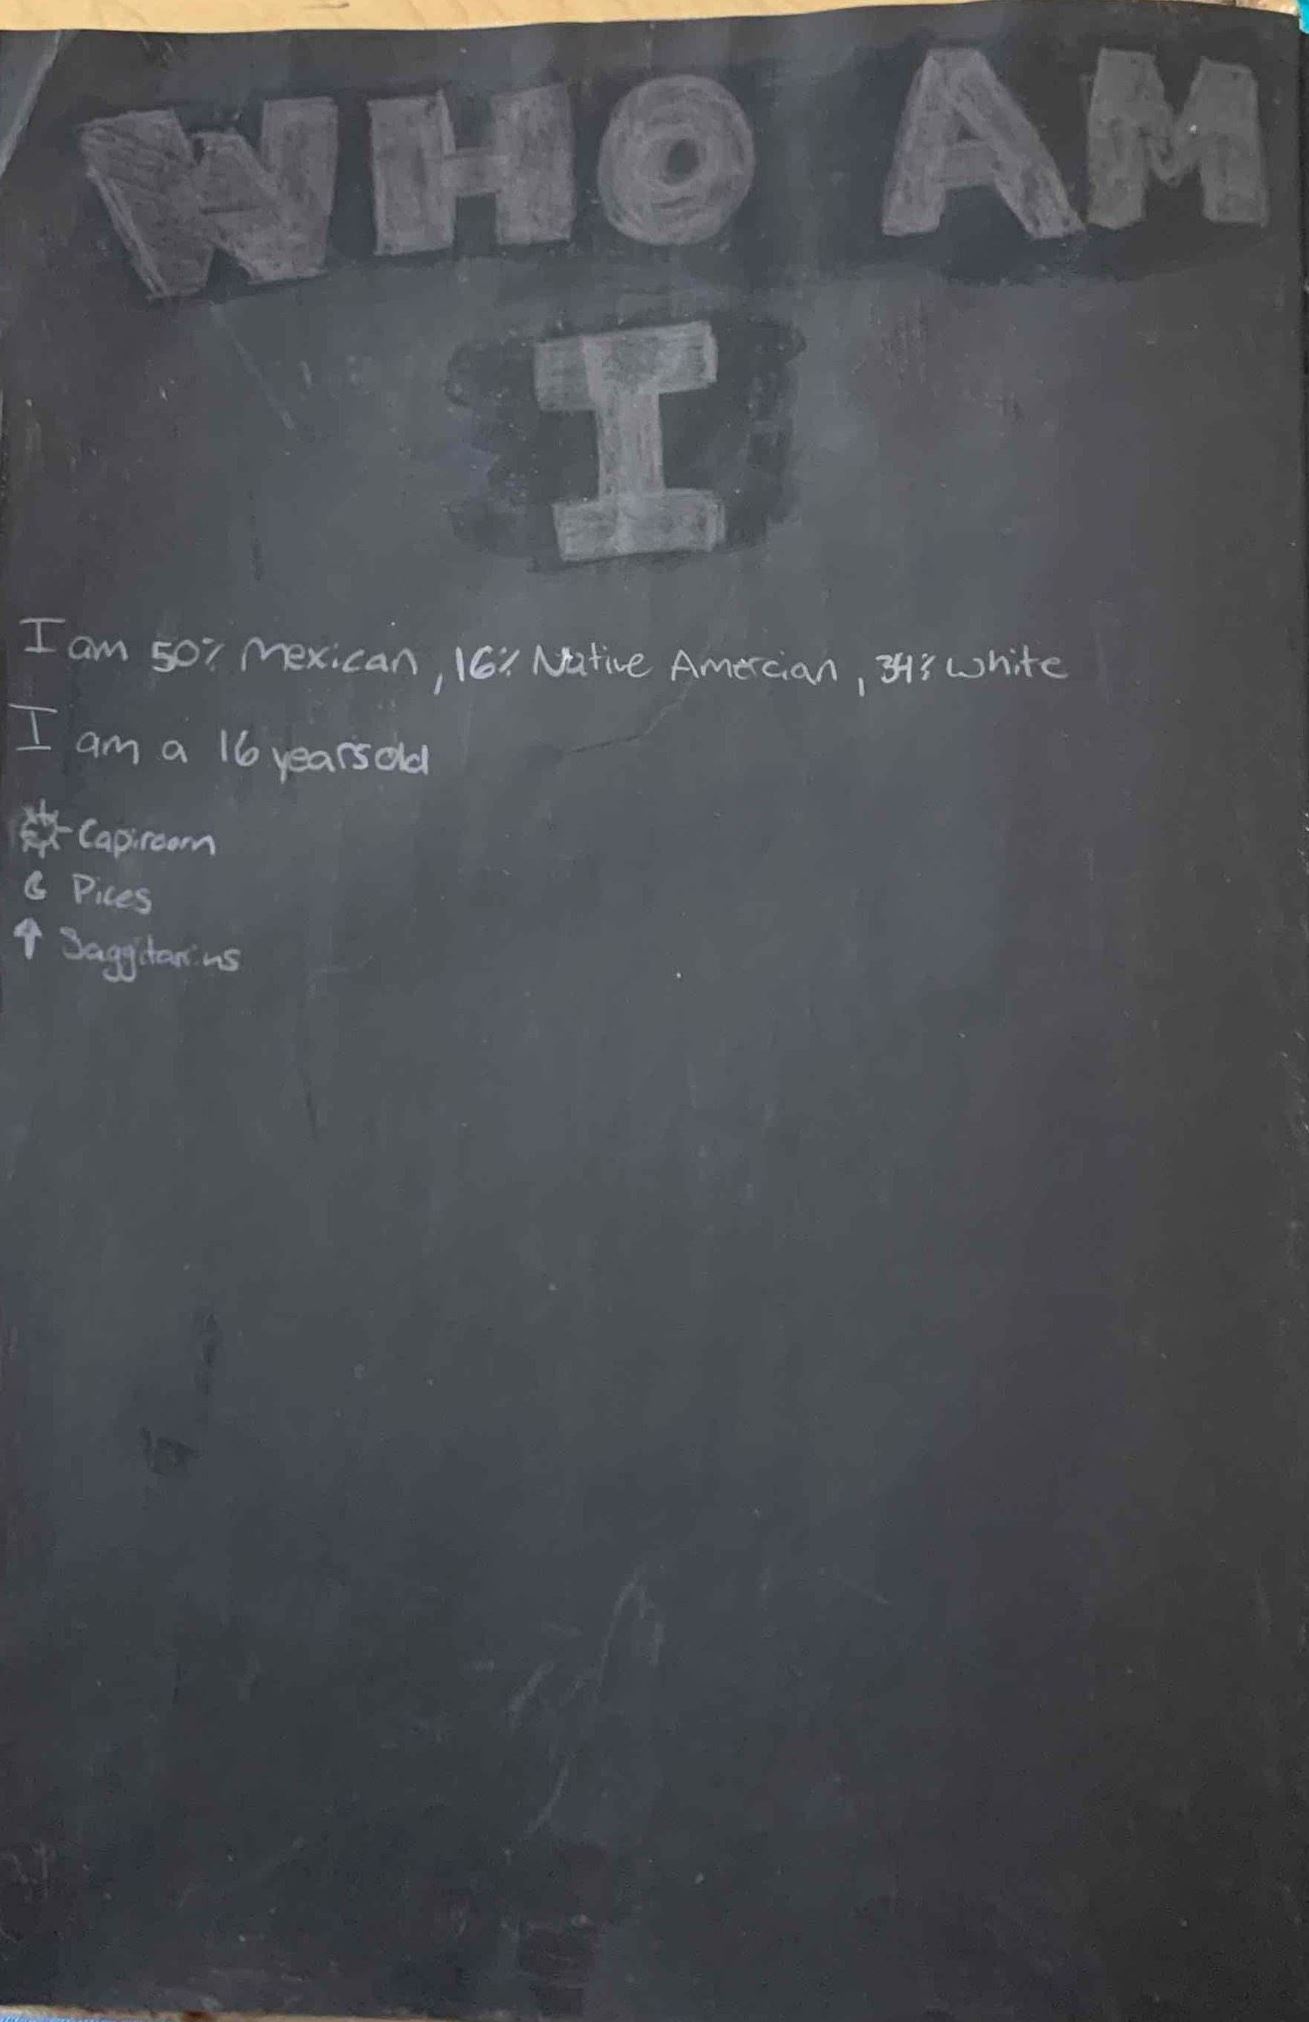 WHO AM
I
I am 50% Mexican, 16% Native Amercian, 34% white
I am a 16 years old
Capircorn
Pices
Saggitarius